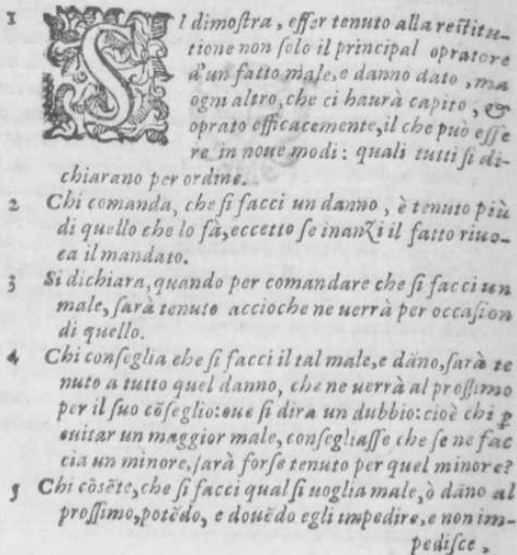 1 SI dimoſtra, eſſer tenuto alla reſtitu-
tione non ſolo il principal opratore
d'un fatto male, e danno dato, ma
ogni altro, che ci haurà capito, &
oprato efficacemente, il che può eſſe
re in noue modi: quali tutti ſi di-
chiarano per ordine.
2 Chi comanda, che ſi facci un danno, è tenuto più
di quello che lo fà, eccetto ſe inanzi il fatto riuo-
ca il mandato.
3 Si dichiara, quando per comandare che ſi facci un
male, ſarà tenuto accioche ne uerrà per occaſion
di quello.
4 Chi conſeglia che ſi facci il tal male, e dãno, ſarà te
nuto a tutto quel danno, che ne uerrà al proſſimo
per il ſuo cõſeglio: oue ſi dira un dubbio: cioè chi ꝑ
euitar un maggior male, conſegliaſſe che ſe ne fac
cia un minore, ſarà forſe tenuto per quel minore?
5 Chi cõsẽte, che ſi facci qual ſi uoglia male, ò dãno al
proſſimo, potẽdo, e douẽdo egli impedire, e non im-
pediſce,